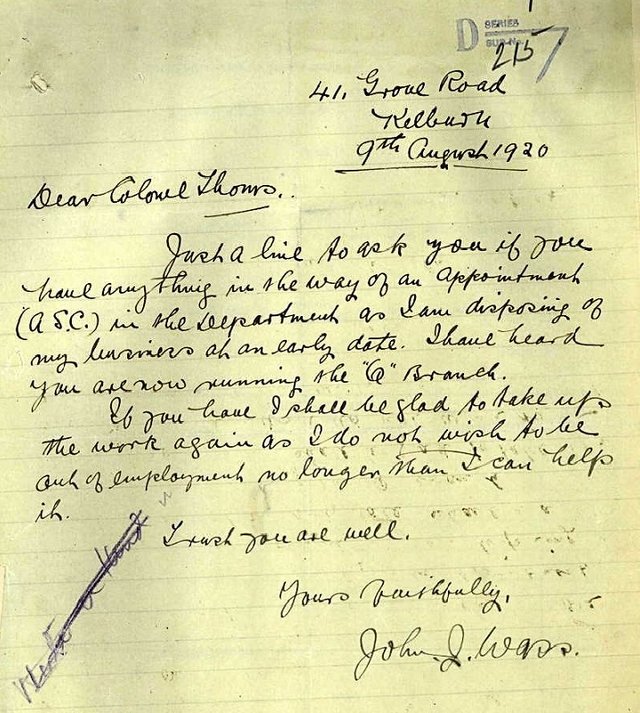 D SERIES
SUB-No.
215
41, Grove Road
Kelburn
9th August 1920
Dear Colonel Thoms.
Just a line to ask you if you
have anything in the way of an appointment
(A S.C.) in the Department as I am disposing of
my business at an early date. I have heard
you are now running the "Q" Branch.
If you have I shall be glad to take up
the work again as I do not wish to be
out of employment no longer than I can help
it.
I trust you are well.
Yours faithfully,
John J. Wass.